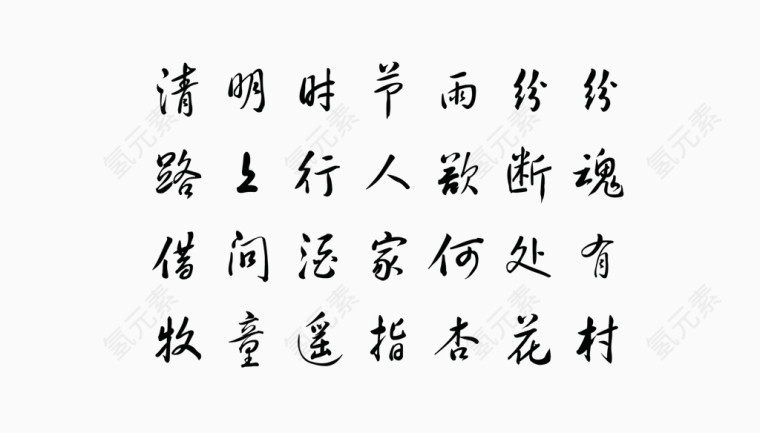 清明时节雨纷纷
路上行人欲断魂
借问酒家何处有
牧童遥指杏花村
氢元素
氢元素
氢元素
氢元素
氢元素
氢元素
氢元素
氢元素